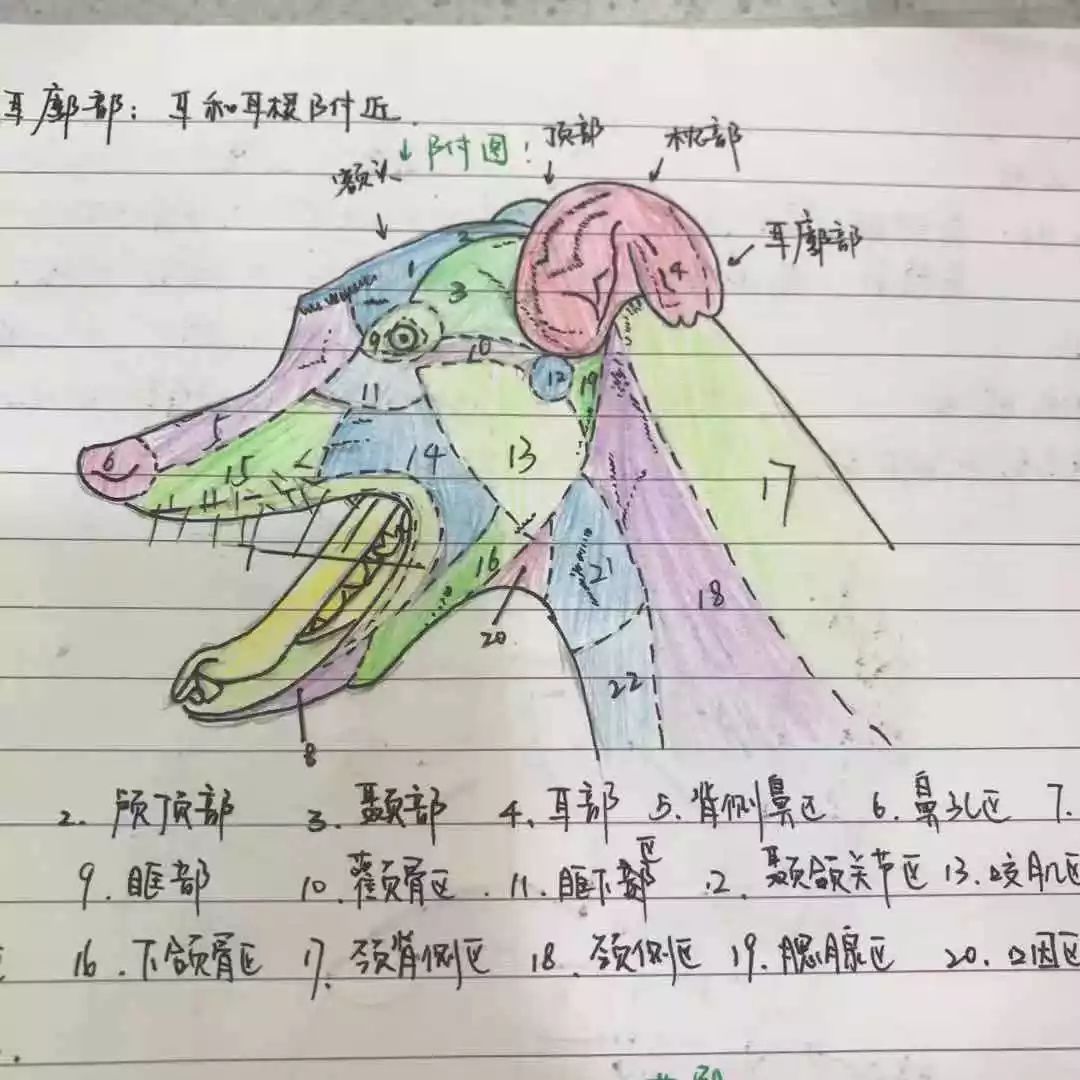 耳廓部：耳和耳根附近
附图：
顶部
枕部
额头
耳廓部
1
2
3
4
9
10
11
12
19
5
6
15
14
13
17
7
16
20
21
18
22
8
2. 颅顶部 3. 颞部 4、耳部 5. 背侧鼻区 6. 鼻孔区 7.
9. 眶部 10. 颧骨区 11. 眶下部区 12. 颞颌关节区 13. 咬肌区
16. 下颌骨区 17. 颈背侧区 18. 颈侧区 19. 腮腺区 20. 口因区